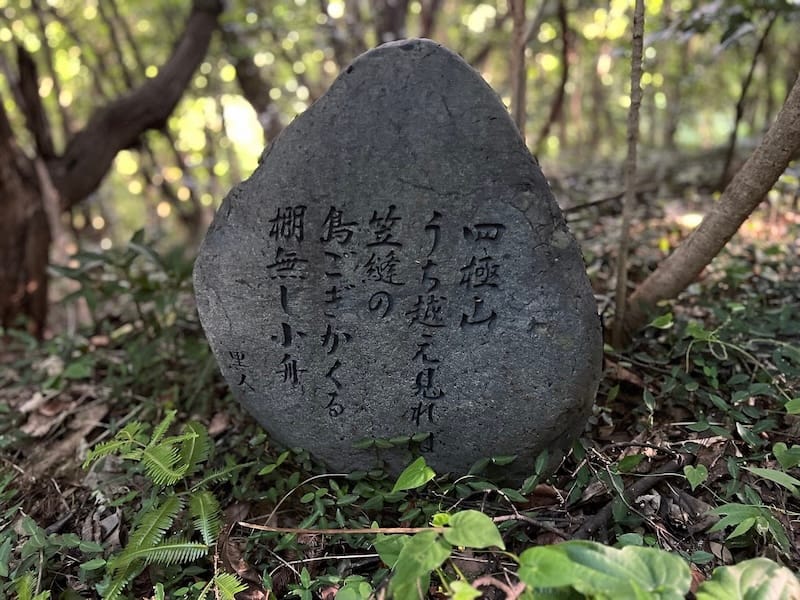 四極山
うち越え見れば
笠縫の
島こぎかくる
棚無し小舟
黒人